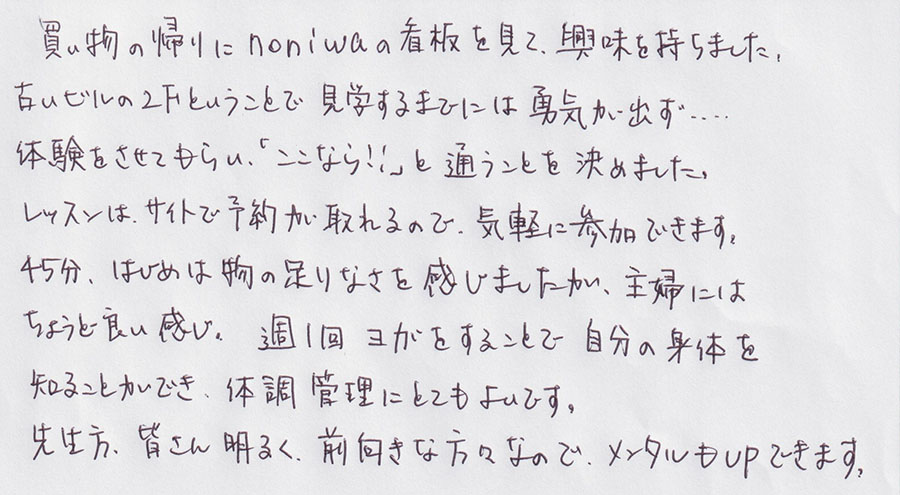 買い物の帰りにnoniwaの看板を見て、興味を持ちました。
古いビルの2Fということで見学するまでには勇気が出ず‥‥
体験をさせてもらい、「ここなら!!」と通うことを決めました。
レッスンは、サイトで予約が取れるので、気軽に参加できます。
45分、はじめは物の足りなさを感じましたが、主婦には
ちょうど良い感じ。週1回ヨガをすることで自分の身体を
知ることができ、体調管理にとてもよいです。
先生方、皆さん明るく、前向きな方々なので、メンタルもupできます。